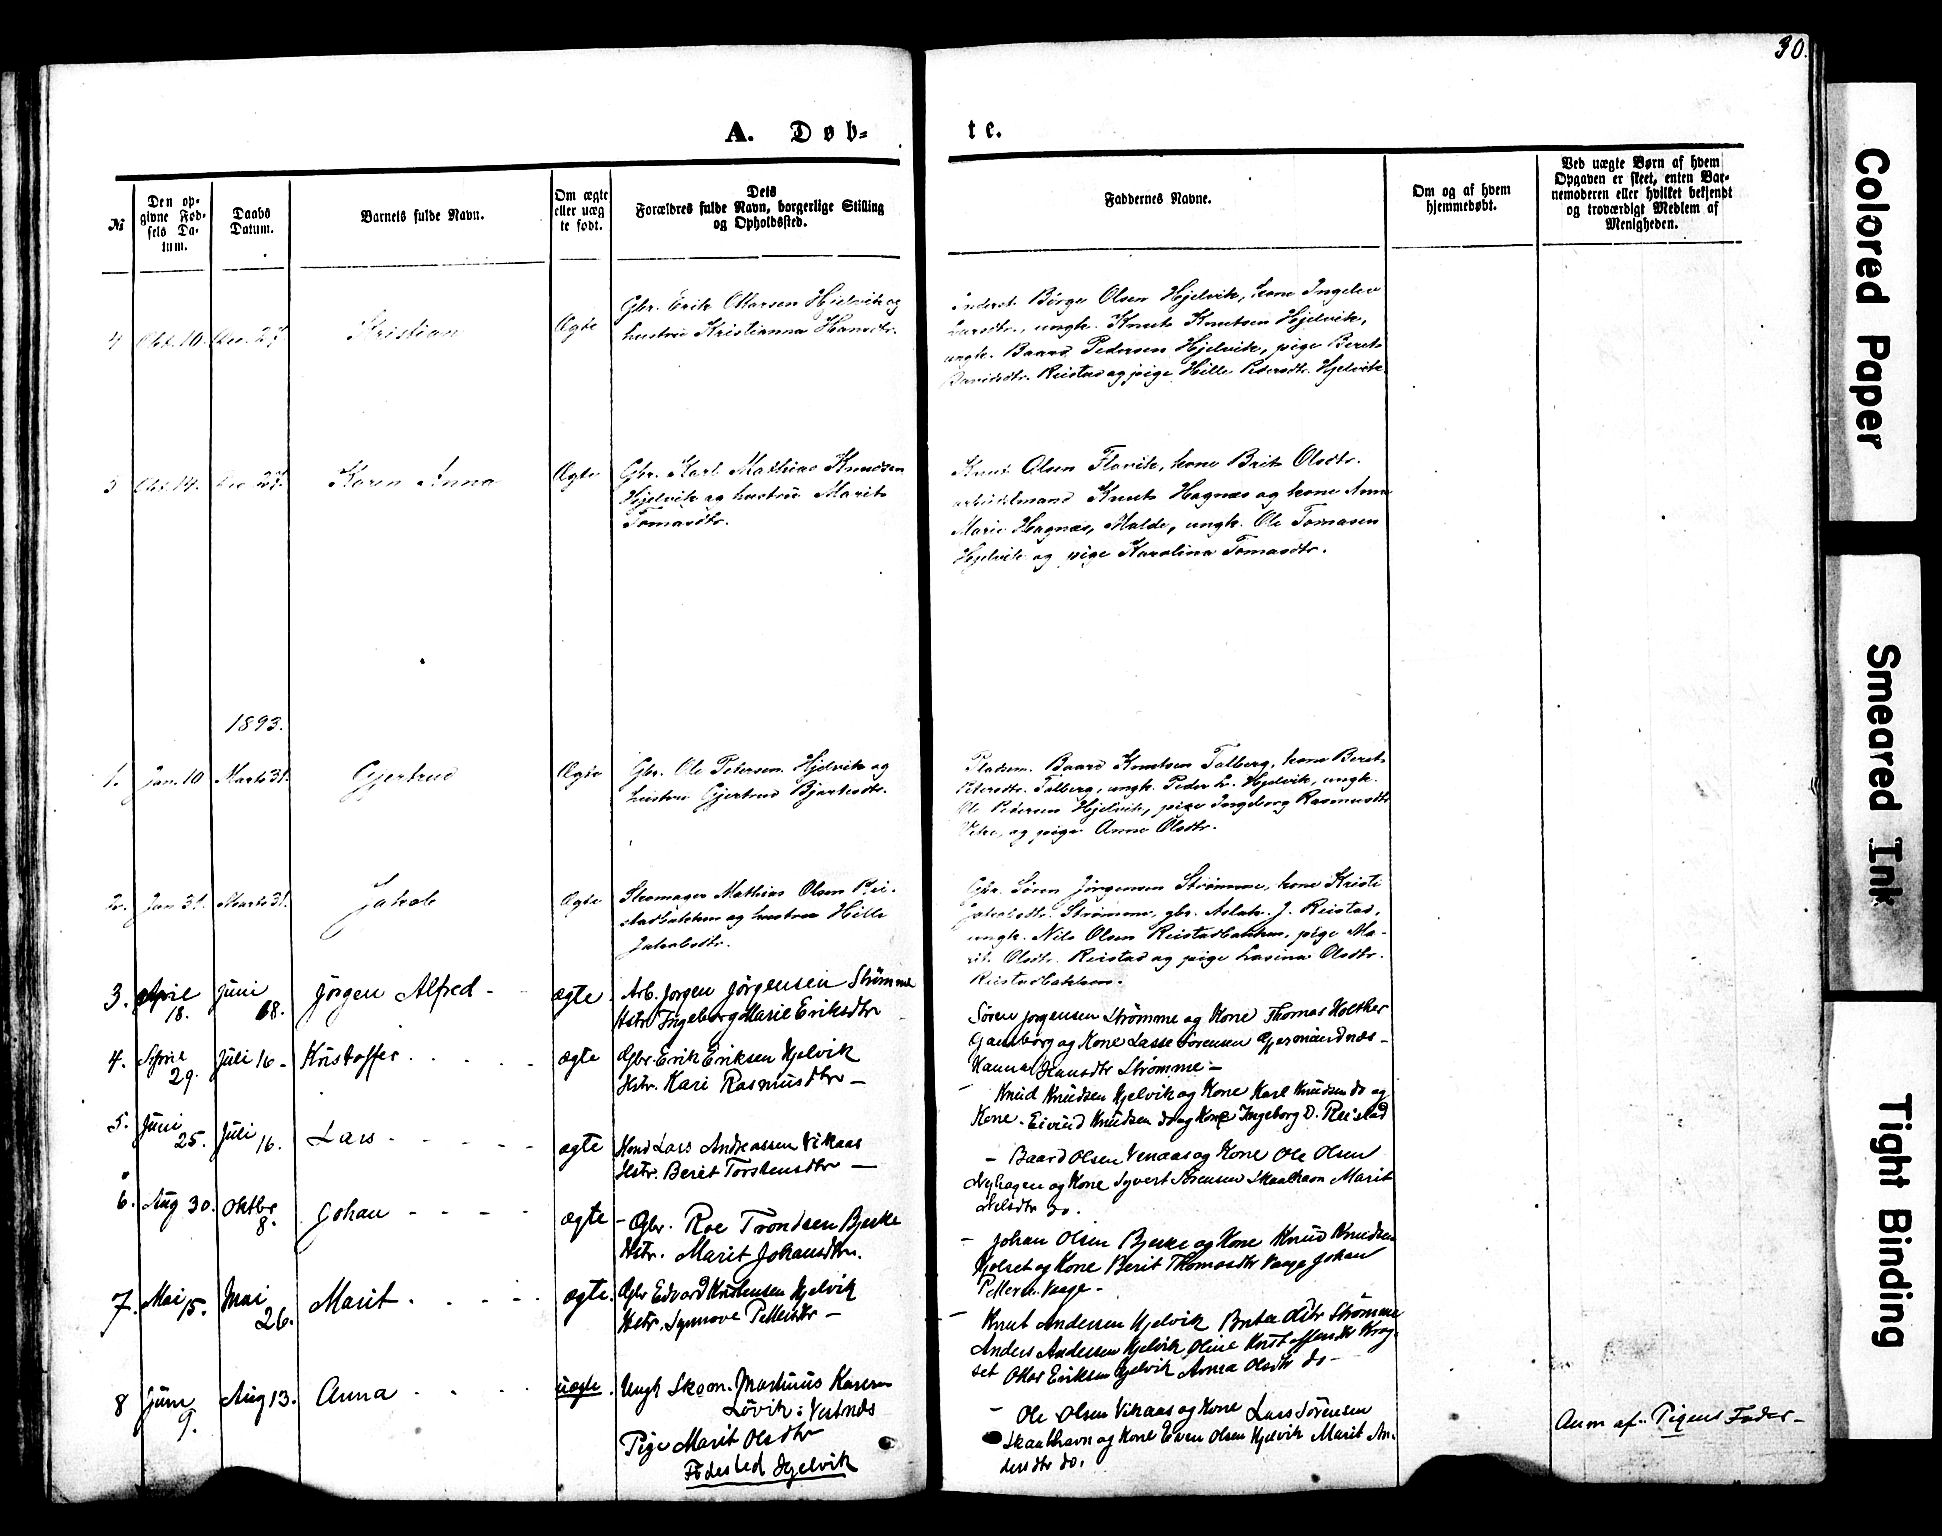 30.
A. Døb-
te.
№
Den op-
givne Fød-
sels Da-
tum.
Daabs
Datum.
Barnets fulde Navn.
Om ægte
eller uæg
te født.
Dets
Forældres fulde Navn, borgerlige Stilling
og Opholdssted.
Faddernes Navne.
Om og af hvem
hjemmedøbt.
Ved uægte Børn af hvem
Opgaven er skeet, enten Bar-
nemoderen eller hvilket bekjendt
og troværdigt Medlem af
Menigheden.
4 Okt. 10. Dec. 27. Kristian Ægte
Gbr. Erik Hjelvik og
hustru Kristianna Hansdtr.
Børge Olsen Hjelvik, kone
Larsdtr., ungk. Knut Knutsen Hjelvik,
ungk. Baard Pedersen Hjelvik, pige Berit
Reistad og pige Hille Pedersdtr. Hjelvik.
5 Okt. 14. Dec. 27. Karen Anna Ægte
Gbr. Karl Mathias Knudsen
Hjelvik og hustru Marit
Tomasdtr.
Knut Olsen Flovik, kone Brit Olsdtr.
arbeidsmand Knut Hagnæs og kone Anne
Marie Hagnæs, Molde, ungk. Ole Tomasen
Hjelvik og pige Karolina Tomasdtr.
1893.
1. Jan. 10 Marts 31. Gjertrud Ægte
Gbr. Ole Petersen Hjelvik og
hustru Gjertrud Bjartsdtr.
Pladsm. Baard Knutsen Talberg, kone Berit
Petersdtr. Talberg, ungk. Peder L. Hjelvik, ungk.
Ole Pedersen Hjelvik, pige Ingeborg Rasmusdtr.
og pige Anne Olsdtr.
2. Jan. 31. Marts 31. Jakob Ægte
Skomager Mathias Olsen Rei-
stadbakken og hustru Hille
Jakobsdtr.
Gbr. Sören Jörgensen Strömme, kone Kristi
Jakobsdtr. Strömme, gbr. Aslak J. Reistad,
ungk. Nils Olsen Reistadbakken, pige Ma-
rit Olsdtr. Reistad og pige Lasina Olsdtr.
Reistadbakken.
3. April 18. Juni 18. Jørgen Alfred - ægte
Arb. Jørgen Jørgensen Strømme
Hstr. Ingeborg Marie Eriksdtr
Søren Jørgensen Strømme og Kone Thomas Holther
og Kone Lasse Sørensen Gjermundnæs -
Hanna Hansdtr Strømme -
4. April 29. Juli 16 - Kristoffer ægte
Gbr. Erik Eriksen Hjelvik
Hstr. Kari Rasmusdtr -
Knud Knudsen Hjelvik og Kone Karl Knudsen do og
Kone. Eivind Knudsen do og Kone Ingeborg D. Reistad
5. Juni 25. Juli 16. Lars - ægte
Lars Andreassen Vikaas
Hstr. Beret Torstensdtr -
- Baard Olsen Venaas og Kone Ole Olsen
Nyhagen og Kone Syvert Sørensen Skaalhavn Marit
Nelsdtr do.
6. Aug 30. Oktbr 8. Johan - ægte
- Gbr. Roe Trondsen Bjerke
Hstr. Marit Johansdtr.
- Johan Olsen Bjerke og Kone Knud Knudsen
og Kone Berit Thomasdtr Vaage Johan
Vaage -
7. Mai 15. Mai 26. Marit ægte.
Gbr Edvard Kristensen Hjelvik
Hstr. Synnove -
- Knut Andersen Hjelvik Olsdtr Strømme
Anders Andersen Hjelvik Oline Krog-
set Eriksen Hjelvik Anna Olsdtr do -
8 Juni 9. Aug 13. Anna uægte.
Ungk Skom. Martinus
Løvik : Vestnæs
Pige Marit Olsdtr
Fødested Hjelvik
- Ole Olsen Vikaas og Kone Lars Sørensen
Skaalhavn og Kone Even Olsen Hjelvik Marit An-
dersdtr do.
Anm af Pigens Fader -
Colored Paper
Smeared Ink
Tight Binding